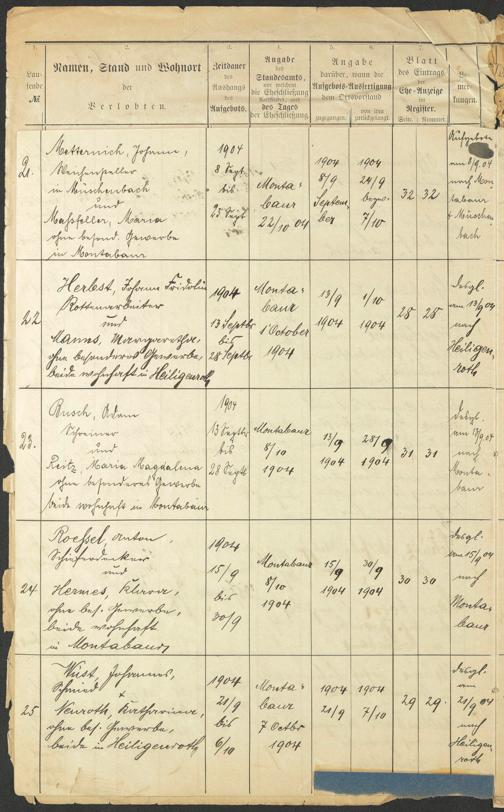 1.
Lau-
fende
№
2.
Namen, Stand und Wohnort
der
Verlobten.
3.
Zeitdauer
des
Aushangs
des
Aufgebots.
4.
Angabe
des
Standesamts,
vor welchem
die Eheschließung
stattfindet, und
des Tages
der Eheschließung
5.
6.
Angabe
darüber, wann die
Aufgebots-Ausfertigung
dem Ortsvorstand
zugegangen.
von ihm
zurückgelangt.
7.
Blatt
des Eintrags
der
Ehe-Anzeige
im
Register.
Seite.
Nummer.
8.
Be-
mer-
kungen.
21.
Metternich, Johann,
in Müschenbach
und
Maßfeller, Maria
ohne besond. Gewerbe
in Montabaur
1904
8 Sept.
bis
25 Sept
Monta-
baur
22/10 04
1904
8/9
Septem-
ber
1904
24/9
bezw.
7/10
32 32
Aufgebote
am 8/9 04
nach Mon
tabaur
+ Müschen
bach
22
Herbst, Johann Fridolin
Rottenarbeiter
und
Manns, Margaretha,
ohne besonderes Gewerbe,
beide wohnhaft in Heiligenroth
1904
13 Septbr
bis
28 Septbr
Monta-
baur
1 October
1904
13/9
1904
1/10
1904
28 28
desgl.
am 13/9 04
nach
Heiligen
roth
23.
Busch, Adam
Schreiner
und
Reitz, Maria Magdalena
ohne besonderes Gewerbe
beide wohnhaft in Montabaur
1904
13 Septbr
bis
28 Septb
Montabaur
8/10
1904
13/9
1904
28/9
1904
31 31
desgl.
nach
Monta-
baur
24
Roeßel, Anton,
Schieferdecker
und
Hermes, Klara,
ohne bes. Gewerbe,
beide wohnhaft
in Montabaur
1904
15/9
bis
30/9
Montabaur
8/10
1904
15/9
1904
30/9
1904
30 30
desgl.
am 15/9 04
nach
Monta-
baur
25
Wüst, Johannes,
Schmied
+
Neuroth, Katharina,
ohne bes. Gewerbe,
beide in Heiligenroth
1904
21/9
bis
6/10
Monta-
baur
7 Octbr
1904
1904
21/9
1904
7/10
29 29.
desgl.
am
21/9 04
nach
Heiligen
roth